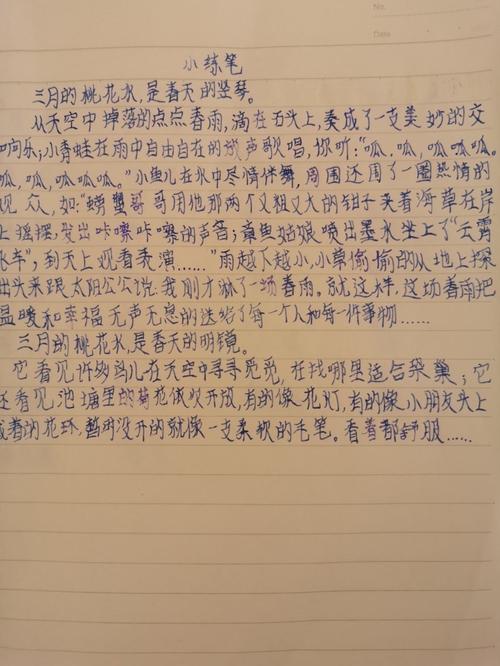 No.
Date
小练笔
三月的桃花水,是春天的竖琴。
从天空中掉落的点点春雨,滴在石头上,奏成了一支美妙的交
响乐;小青蛙在雨中自由自在的放声歌唱,你听:"呱,呱,呱呱呱。
呱,呱,呱呱呱。"小鱼儿在水中尽情伴舞,周围还围了一圈热情的
观众,如:"螃蟹哥哥用他那两个又粗又大的钳子夹着海草在岸
上摇摆,发出咔嚓咔嚓的声音;章鱼姑娘喷出墨水坐上了"云霄
飞车",到天上观看表演……"雨越下越小,小草偷偷的从地上探
出头来跟太阳公公说:我刚才淋了一场春雨。就这样,这场春雨把
温暖和幸福无声无息的送给了每一个人和每一件事物……
三月的桃花水,是春天的明镜。
它看见许多鸟儿在天空中寻寻觅觅,在找哪里适合筑巢;它
还看见池塘里的荷花依次开放,有的像花灯,有的像小朋友头上
戴着的花环,暂时没开的就像一支柔软的毛笔。看着都舒服……